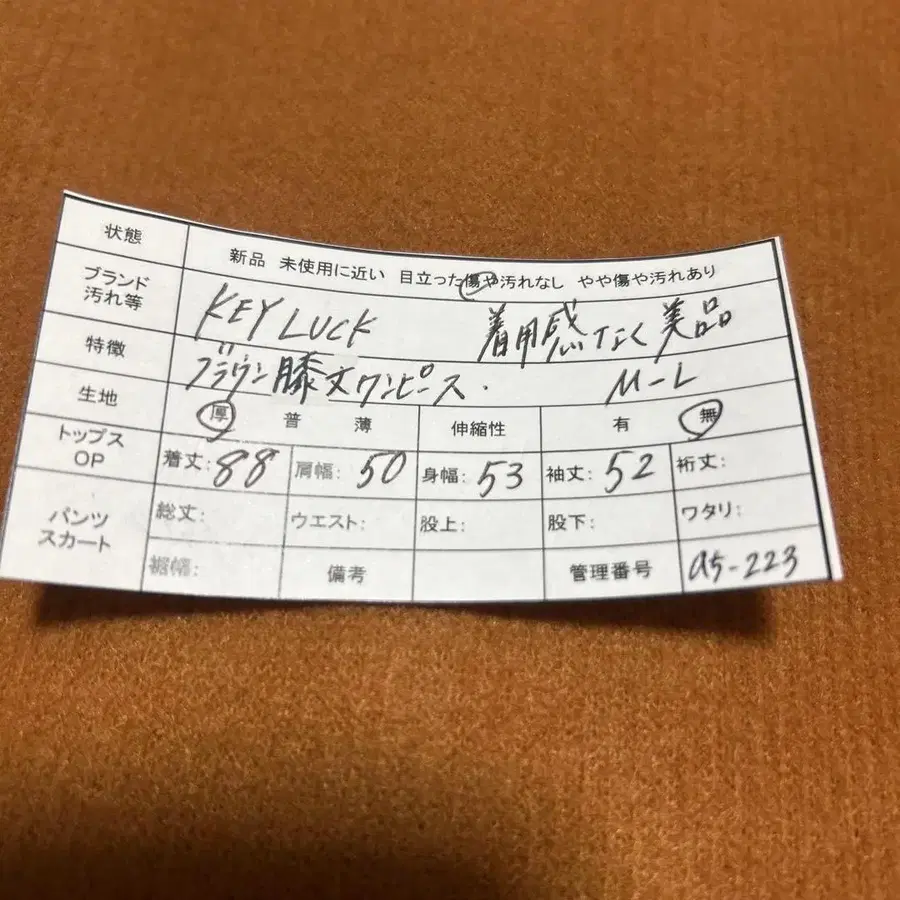 状態 新品 未使用に近い 目立った傷や汚れなし やや傷や汚れあり
ブランド 汚れ等 KEY LUCK 着用感なく美品
特徴 ブラウン膝丈ワンピース. M-L
生地 厚 普 薄 伸縮性 有 無
トップス OP 着丈:88 肩幅:50 身幅:53 袖丈:52 裄丈:
パンツ スカート 総丈: ウエスト: 股上: 股下: ワタリ:
裾幅: 備考 管理番号 a5-223